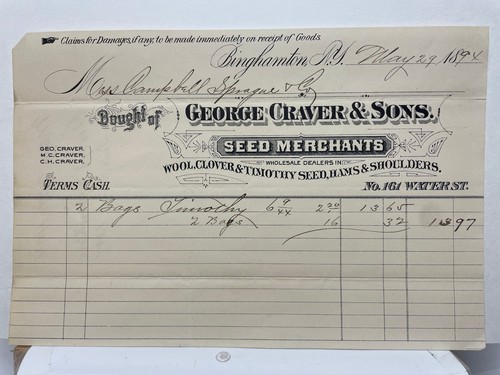 Claims for Damages, if any, to be made immediately on receipt of Goods.
Binghamton N.Y. May 29 1894
Mess Campbell Sprague & Co
Bought of GEORGE CRAVER & SONS.
SEED MERCHANTS
GEO. CRAVER,
M. C. CRAVER,
C. H. CRAVER,
WHOLESALE DEALERS IN
WOOL, CLOVER & TIMOTHY SEED, HAMS & SHOULDERS.
TERMS CASH. No. 161 WATER ST.
2 Bags Timothy 6 9/44 2 20 13 65
2 Bags 16 32 13 97